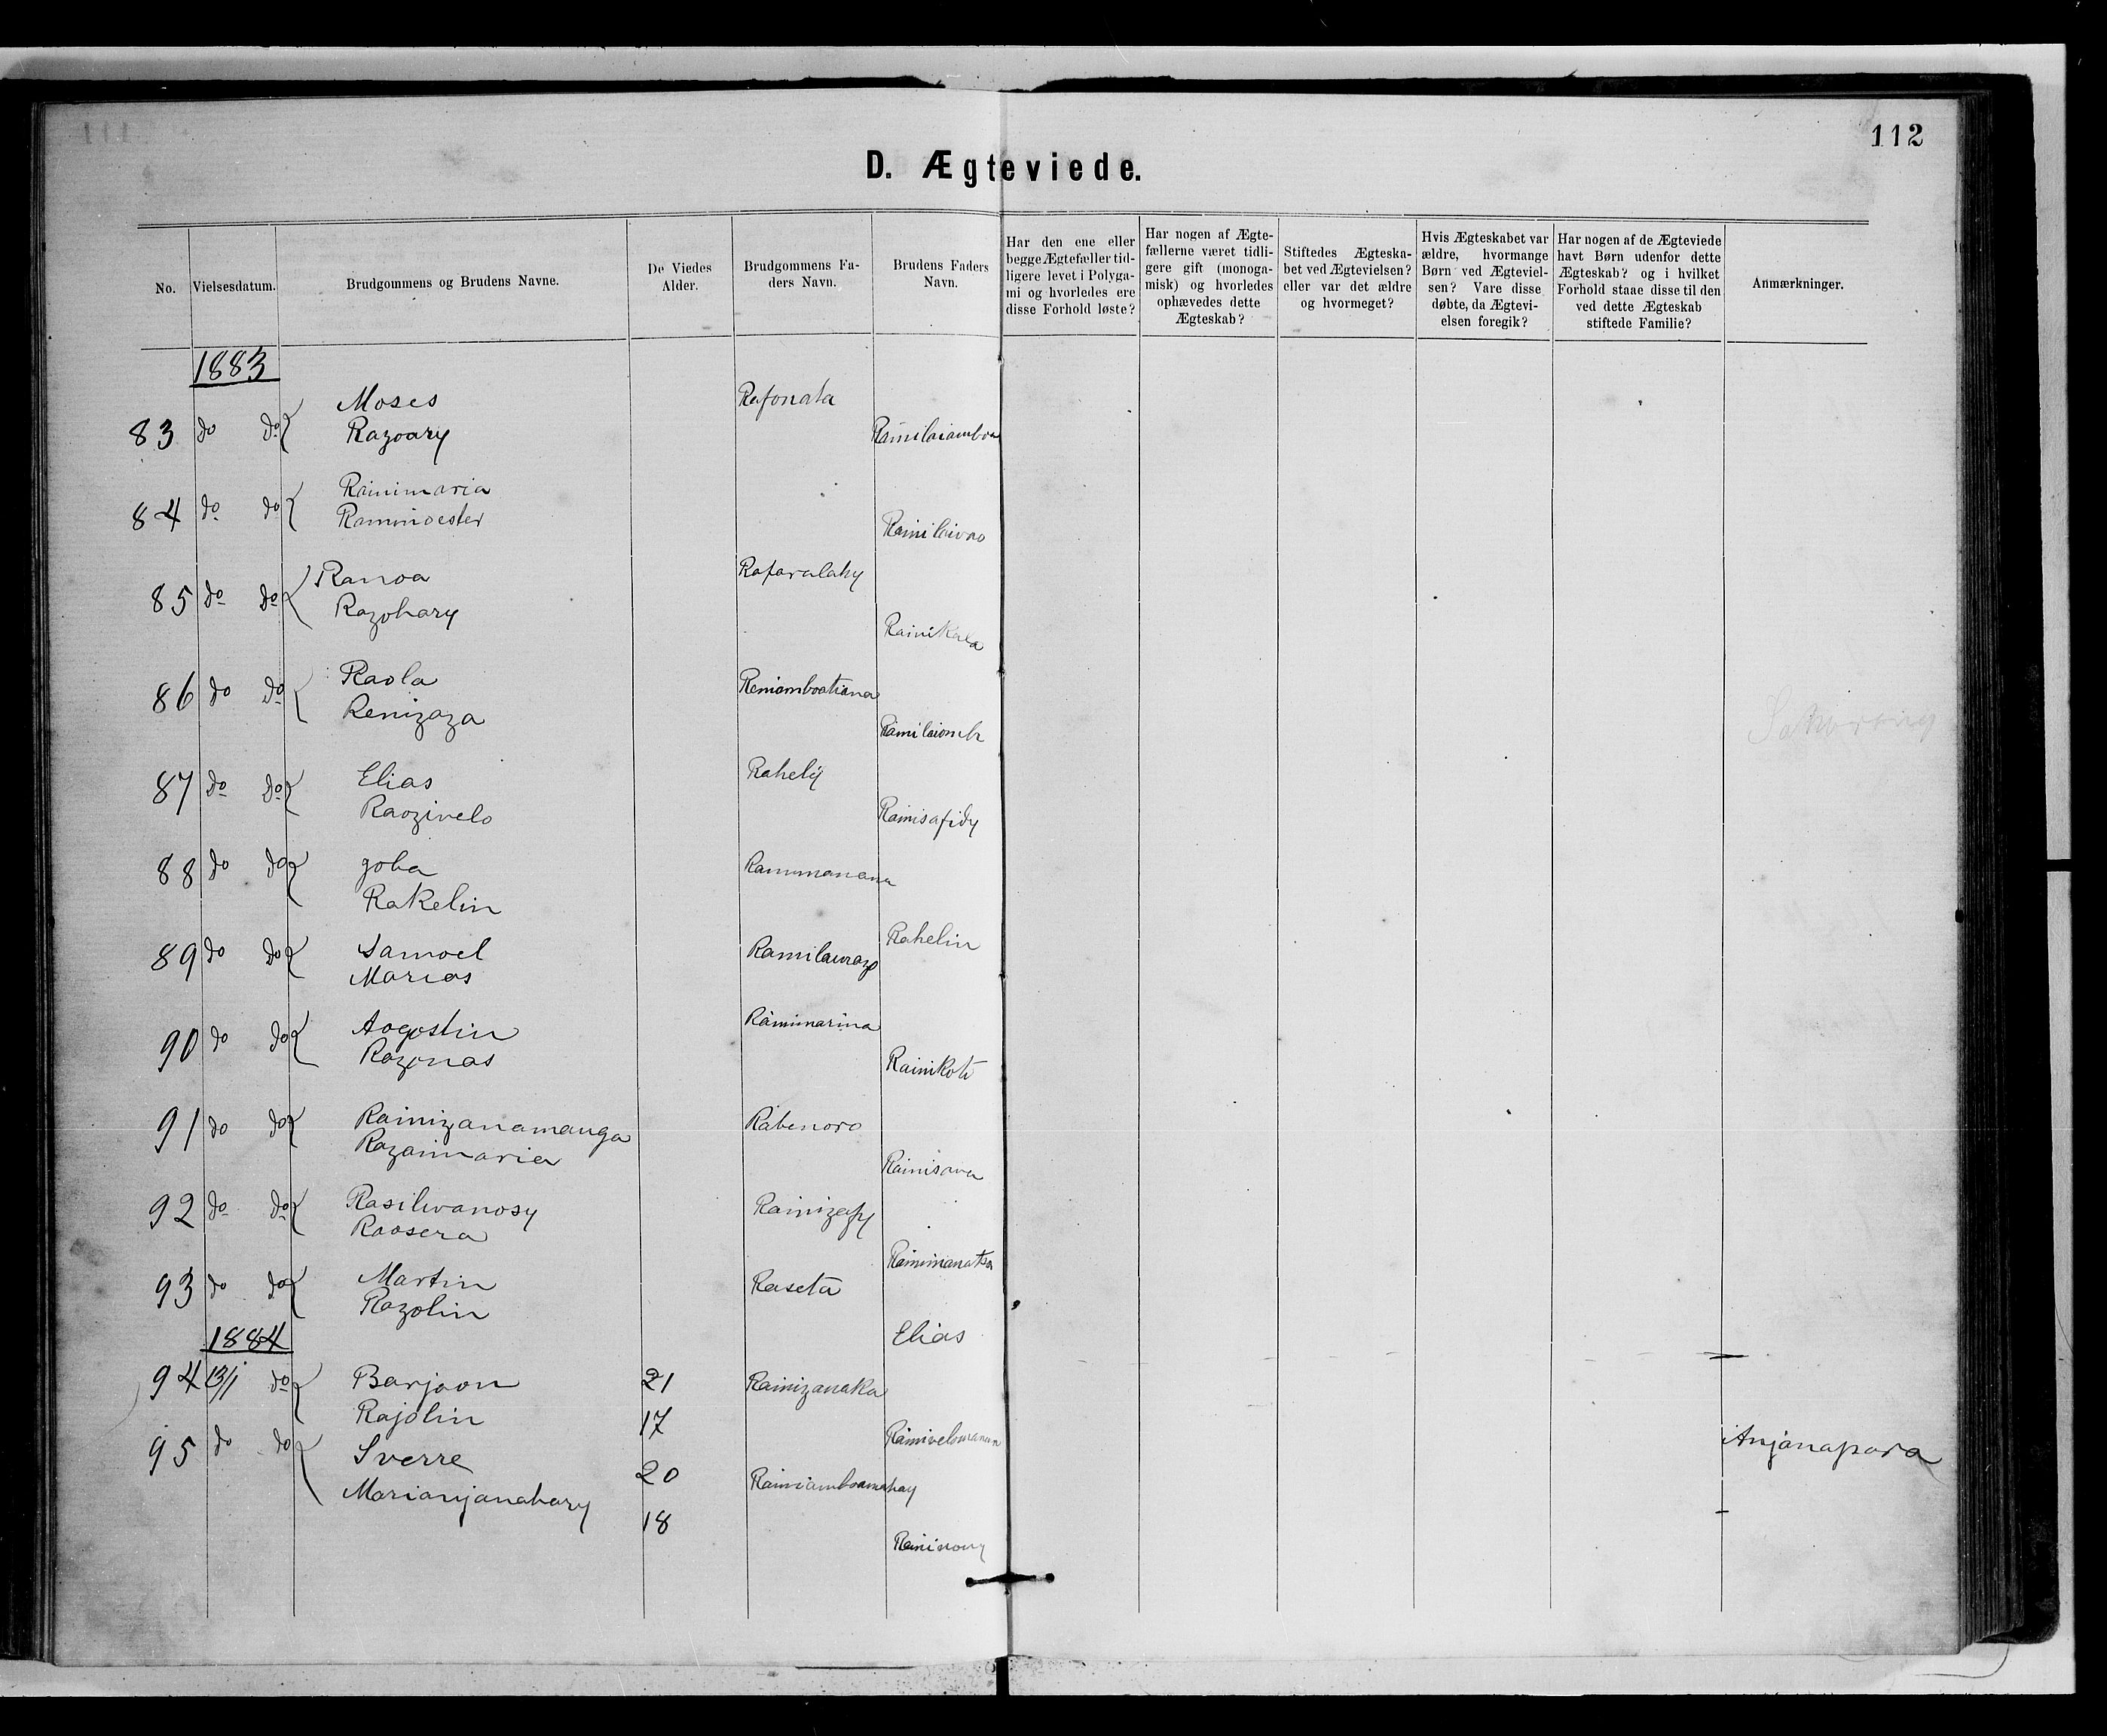 112
D. Ægteviede.
No.
Vielsesdatum.
Brudgommens og Brudens Navne.
De Viedes
Alder.
Brudgommens Fa-
ders Navn.
Brudens Faders
Navn.
Har den ene eller
begge Ægtefæller tid-
ligere levet i Polyga-
mi og hvorledes ere
disse Forhold løste?
Har nogen af Ægte-
fællerne været tidli-
gere gift (monoga-
misk) og hvorledes
ophævedes dette
Ægteskab?
Stiftedes Ægteska-
bet ved Ægtevielsen?
eller var det ældre
og hvormeget?
Hvis Ægteskabet var
ældre, hvormange
Børn ved Ægteviel-
sen? Vare disse
døbte, da Ægtevi-
elsen foregik?
Har nogen af de Ægteviede
havt Børn udenfor dette
Ægteskab? og i hvilket
Forhold staae disse til den
ved dette Ægteskab
stiftede Familie?
Anmærkninger.
1883
83 do do Moses Rafonata
Razoary Rainilaiamboa
84 do do Rainimaria
Raminoester Rainilaivao
85 do do Ranoa Rafaralahy
Razohary Rainikala
86 do do Raola Reniamboatiana
Renizaza Rainilaiomb
87 do do Elias Rahely
Raozivelo Rainisafidy
88 do do Joba Raminanana
Rakelin Rahelin
89 do do Samoel
Marias
90 do do Aogostin Rainimarina
Razonas Rainikoto
91 do do Rainizanamanga Rabenoro
Razaimaria Rainisova
92 do do Rasilivanosy Rainizafy
Raosera Rainimanatsa
93 do do Martin Raseta
Razolin Elias
1884
94 13/1 do Barjaon 21 Rainizanaka
Rajolin 17
95 do do Sverre 20 Rainiamboamahay
Marianjanahary 18
Anjanapara